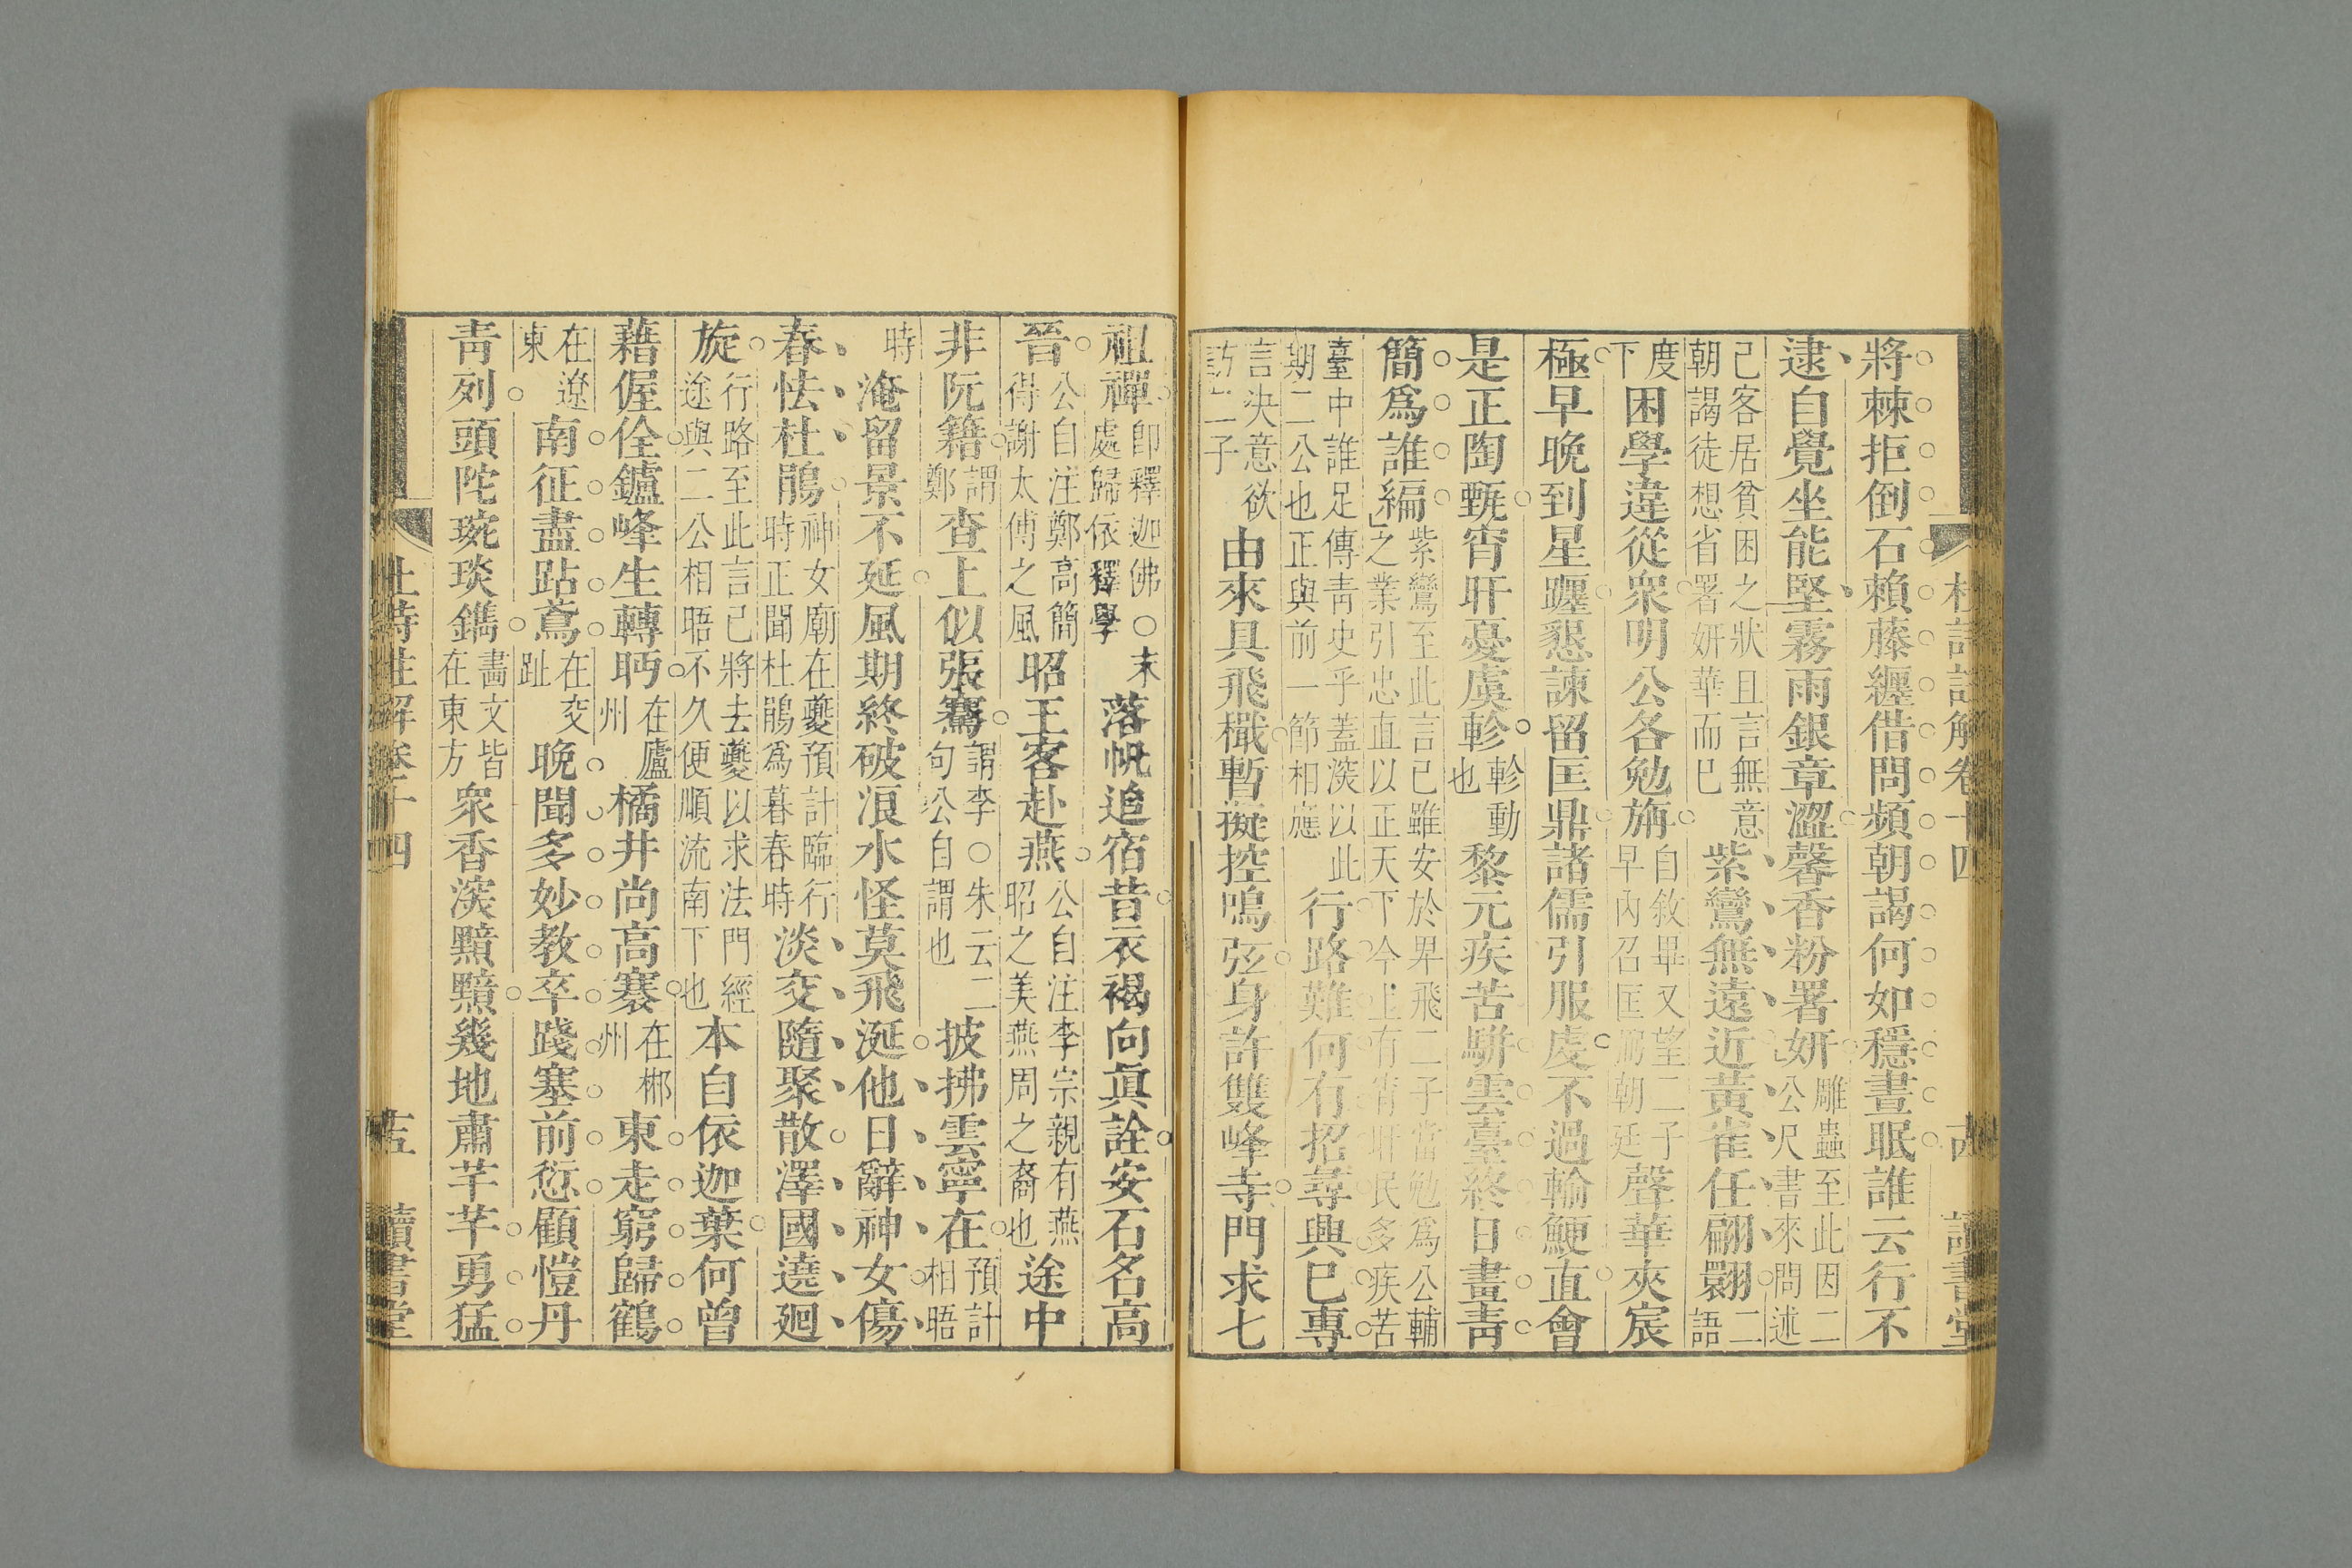 杜詩註解卷十四 十四 讀書堂
將棘拒倒石賴藤纏借問頻朝謁何如穩晝眠誰云行不
逮自覺坐能堅霧雨銀章澀馨香粉署妍
雕蟲至此因二
公尺書來問述
己客居貧困之狀且言無意
朝謁徒想省署妍華而已
紫鸞無遠近黃雀任翩翾
二
語
度
下
困學違從眾明公各勉旃
自敘畢又望二子
早內召匡弼朝廷
聲華夾宸
極早晚到星躔懇諫留匡鼎諸儒引服虔不過輸鯁直會
是正陶甄宵旰憂虞軫
軫動
也
黎元疾苦駢雲臺終日畫靑
簡爲誰編
紫鸞至此言己雖安於卑飛二子當勉爲公輔
之業引忠直以正天下今上有宵旰民多疾苦
臺中誰足傳靑史乎蓋深以此
期二公也正與前一節相應
行路難何有招尋興已專
言決意欲
訪二子
由來具飛檝暫擬控鳴弦身許雙峰寺門求七
祖禪
即釋迦佛○末
處歸依釋學
落帆追宿昔衣褐向眞詮安石名高
晉
公自注鄭高簡
得謝太傅之風
昭王客赴燕
公自注李宗親有燕
昭之美燕周之裔也
途中
非阮籍
謂
鄭
查上似張騫
謂李○朱云二
句公自謂也
披拂雲寧在
預計
相晤
時
淹留景不延風期終破浪水怪莫飛涎他日辭神女傷
春怯杜鵑
神女廟在夔預計臨行
時正聞杜鵑爲暮春時
淡交隨聚散澤國遶迴
旋
行路至此言己將去夔以求法門經
途與二公相晤不久便順流南下也
本自依迦葉何曾
藉偓佺鑪峰生轉眄
在廬
州
橘井尚高褰
在郴
州
東走窮歸鶴
在遼
東
南征盡跕鳶
在交
趾
晚聞多妙教卒踐塞前愆顧愷丹
靑列頭陀琬琰鐫
畫文皆
在東方
衆香深黯黯幾地肅芊芊勇猛
杜詩註解卷十四 十五 讀書堂